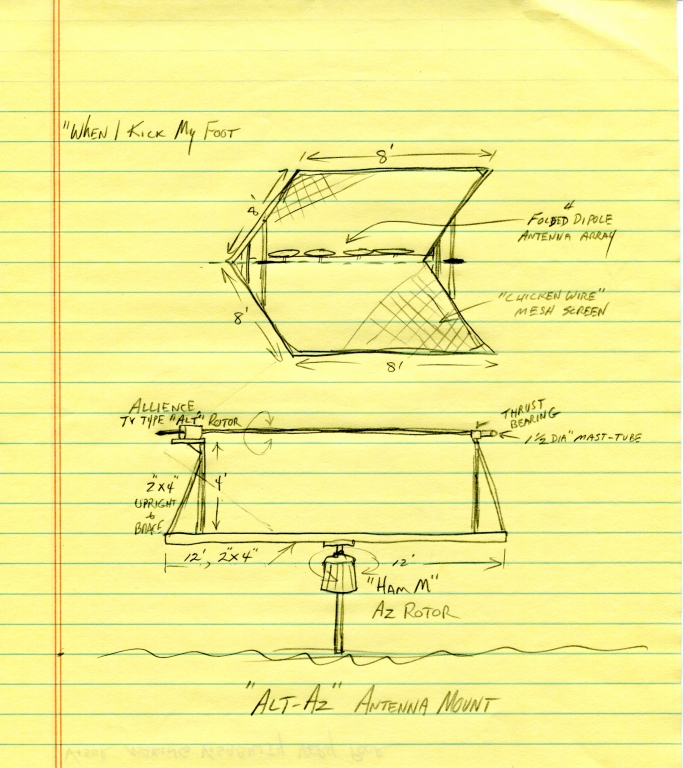 "When I Kick My Foot
8'
8'
4
Folded Dipole
Antenna Array
"Chicken Wire"
Mesh Screen
8'
8'
Allience
TV Type "Alt" Rotor
Thrust
Bearing
1½ Dia" Mast-Tube
"2x4"
Upright
&
Brace
4'
12', 2"x4"
12'
"Ham M"
Az Rotor
"Alt-Az" Antenna Mount